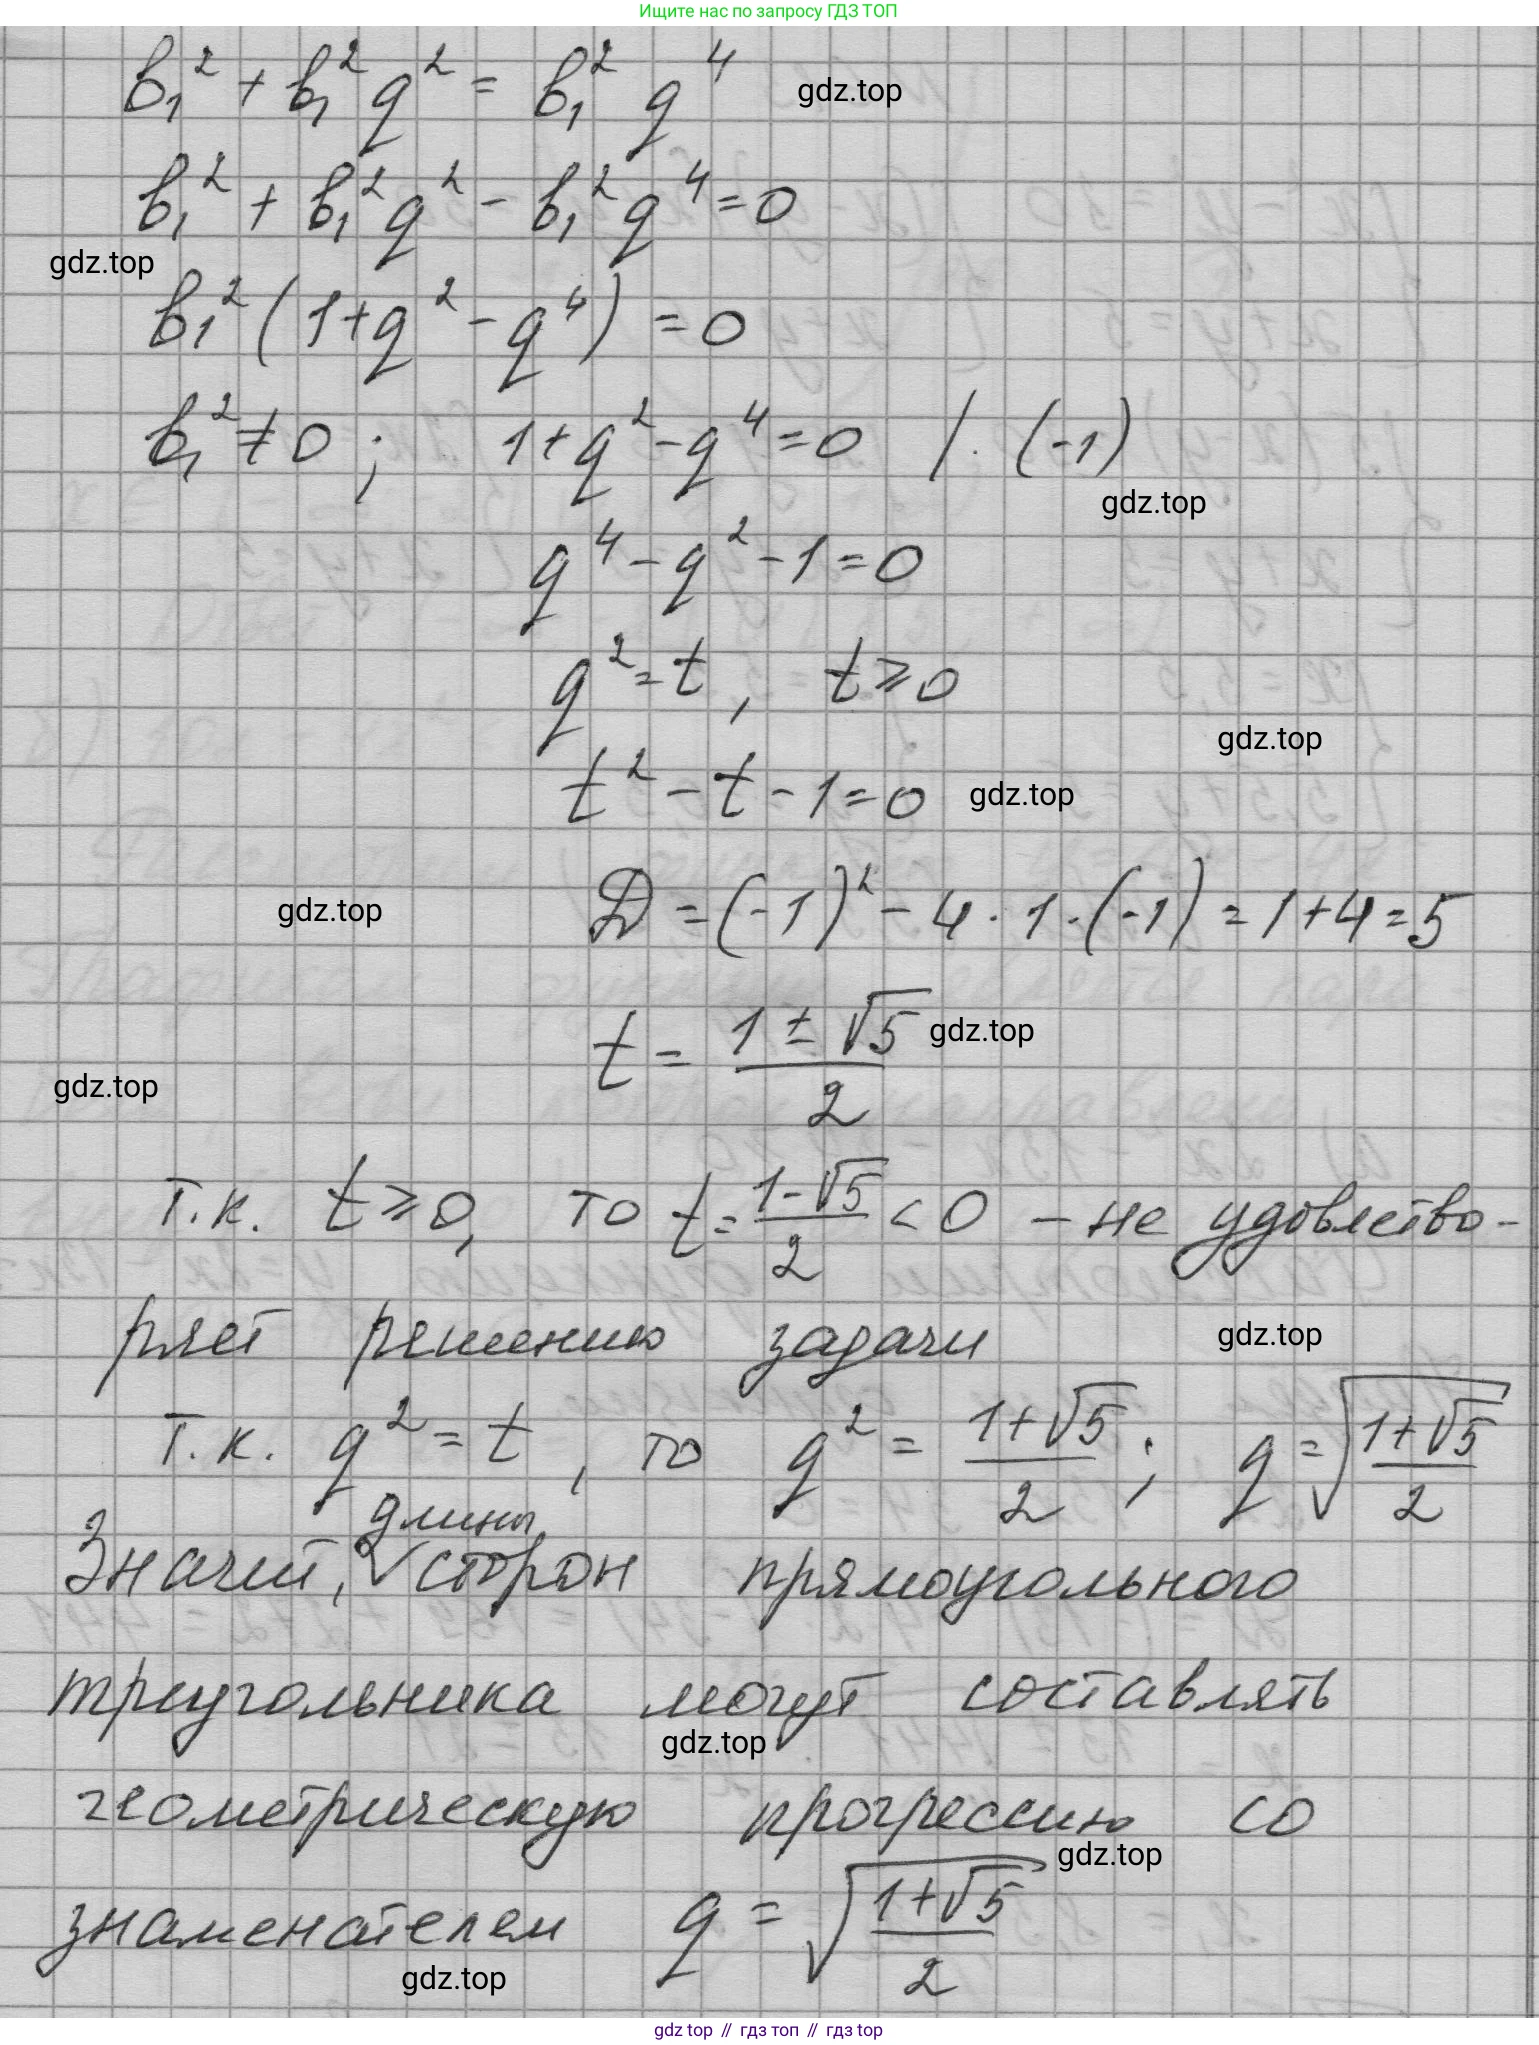 Ищите нас по запросу ГДЗ ТОП
b₁² + b₁² q² = b₁² q⁴ gdz.top
b₁² + b₁² q² - b₁² q⁴ = 0
gdz.top
b₁² (1 + q² - q⁴) = 0
b₁² ≠ 0 ; 1 + q² - q⁴ = 0 / · (-1)
gdz.top
q⁴ - q² - 1 = 0
q² = t , t ⩾ 0
gdz.top
t² - t - 1 = 0 gdz.top
gdz.top D = (-1)² - 4 · 1 · (-1) = 1 + 4 = 5
t = (1 ± √5)/2 gdz.top
gdz.top
т.к. t ⩾ 0, то t = (1 - √5)/2 < 0 - не удовлетво-
ряет решению задачи gdz.top
т.к. q² = t , то q² = (1 + √5)/2 ; q = √((1 + √5)/2)
длины
Значит, √ сторон прямоугольного
треугольника могут составлять
gdz.top
геометрическую прогрессию со
gdz.top
знаменателем q = √((1 + √5)/2)
gdz.top
gdz top // гдз топ // гдз top